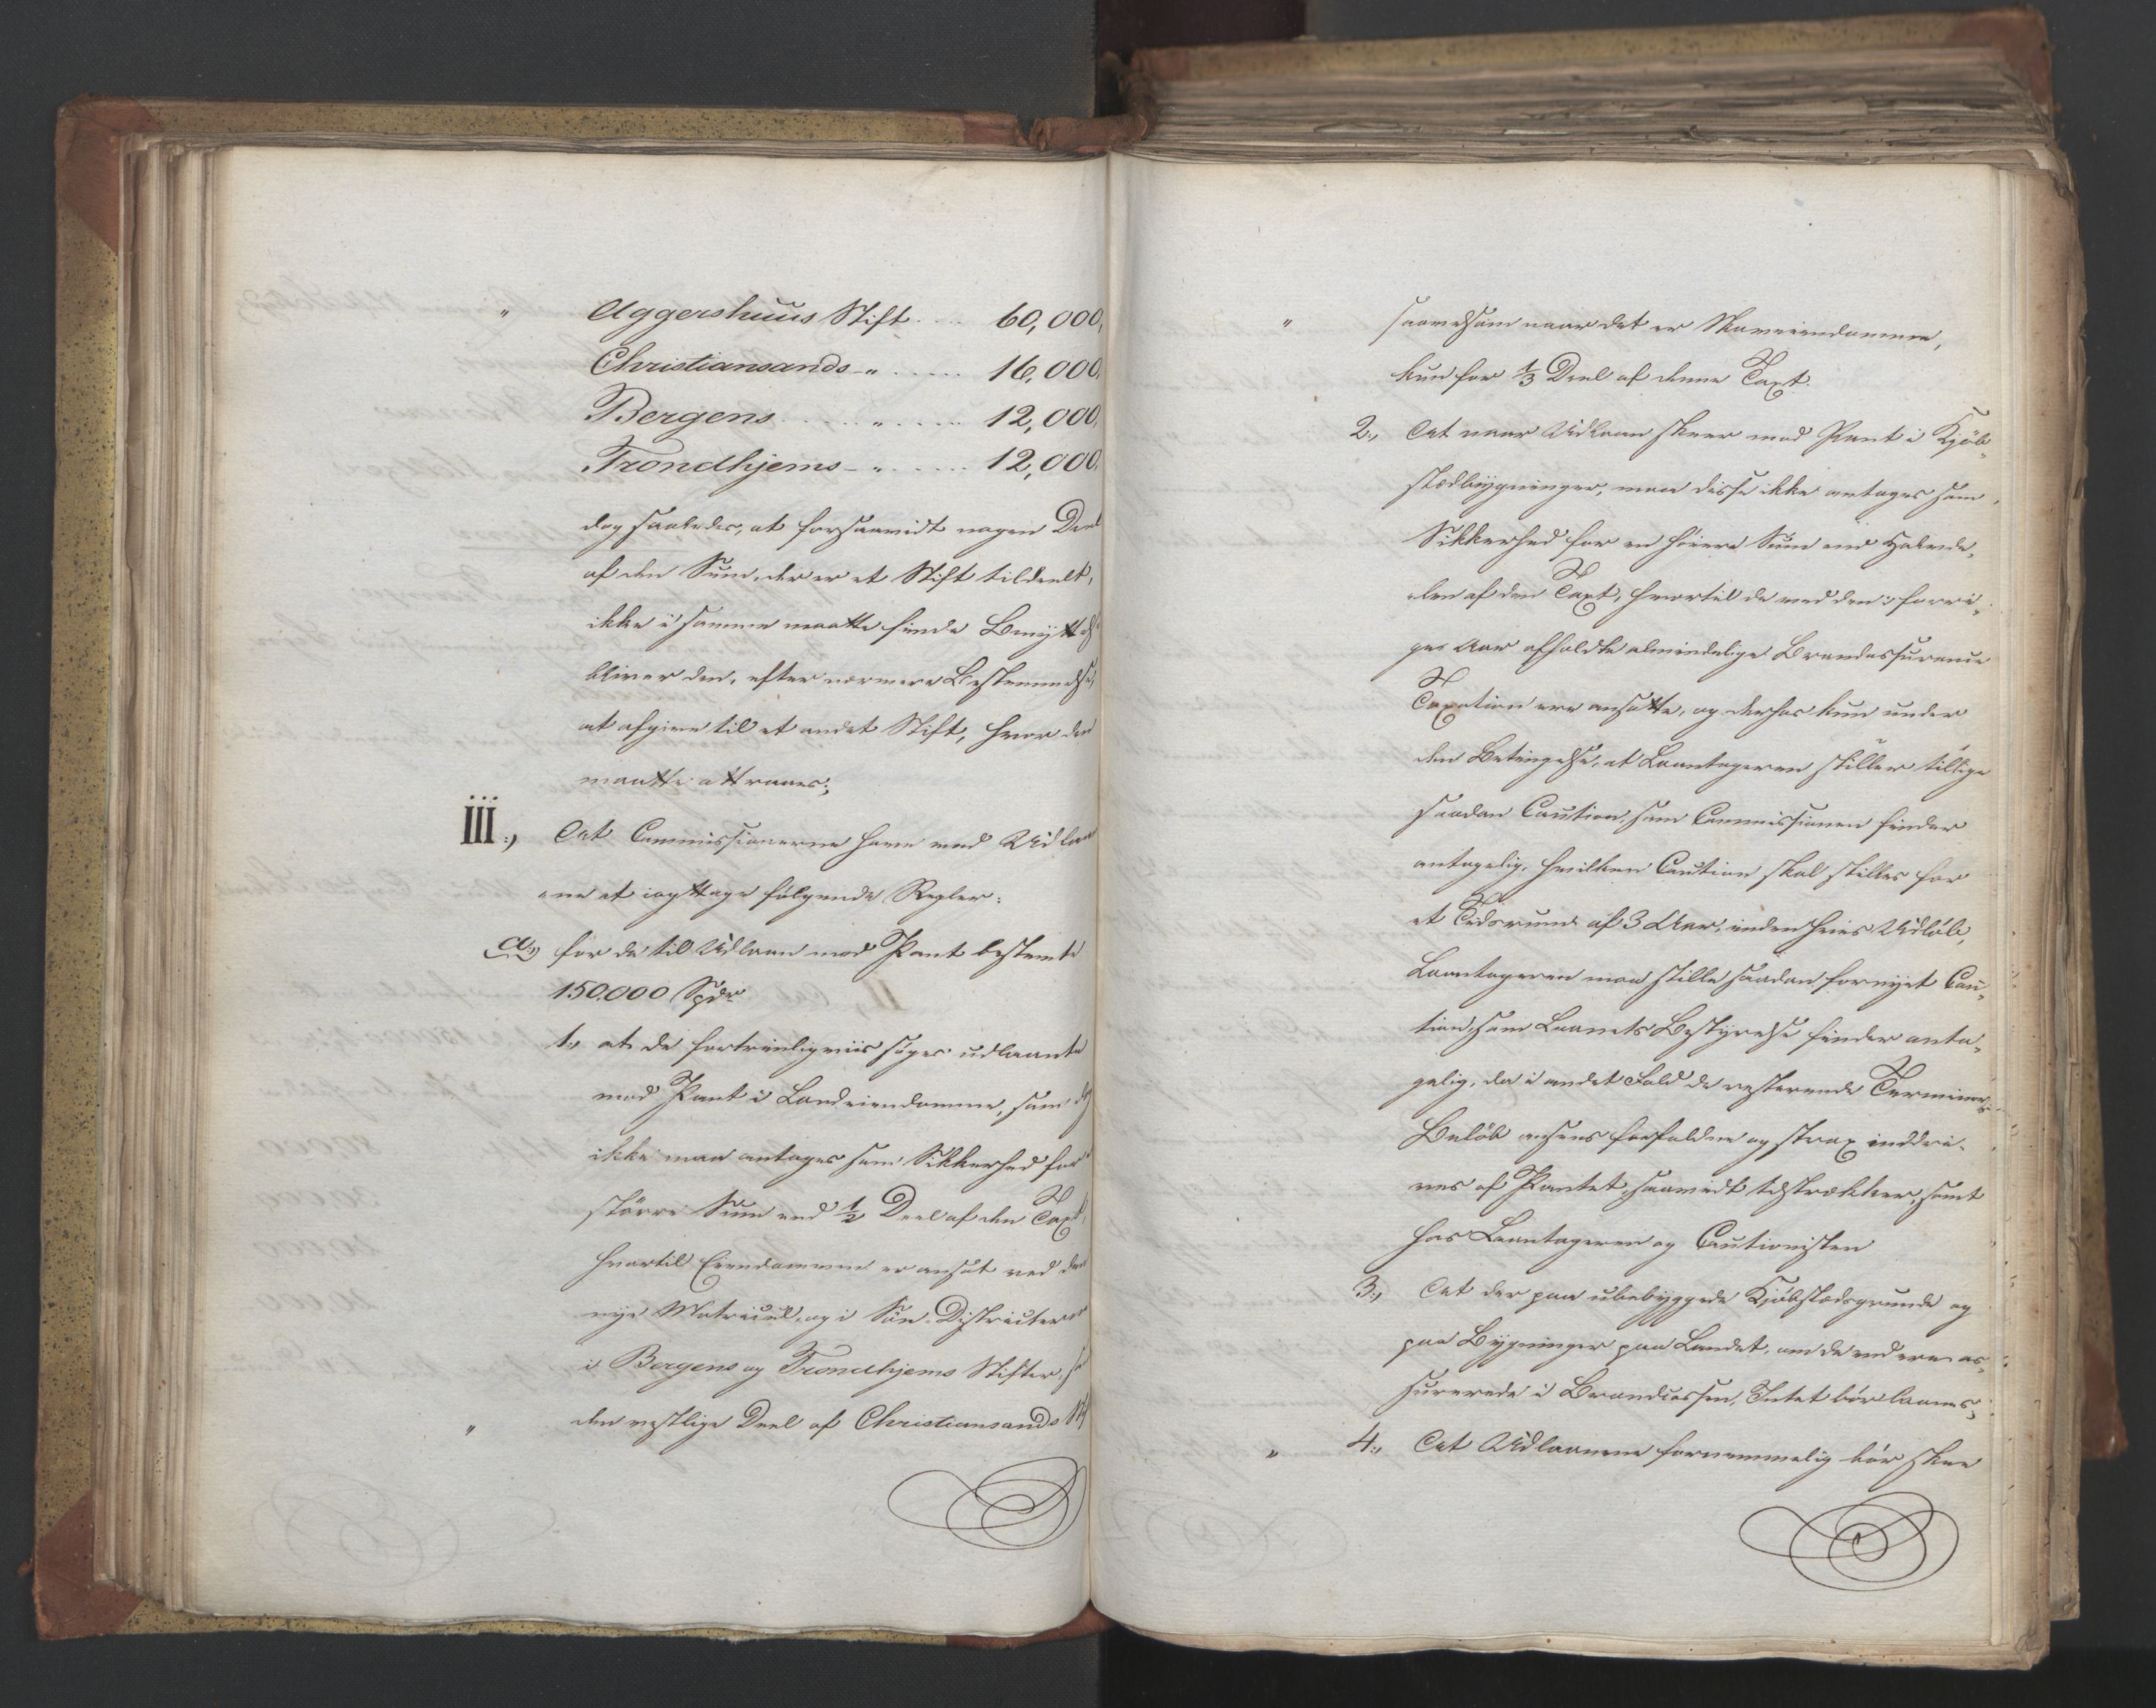 " Aggershuus Stift .... 60,000,
Christiansands - " ..... 16,000,
Bergens ..... " ..... 12,000,
Trondhjems - " ..... 12,000,
dog saaledes, at forsaavidt nogen Deel
af den Sum, der er et Stift tildeelt,
ikke i samme maatte finde Benyttelse
bliver den, efter nærmere Bestemmelse,
at afgive til et andet Stift, hvor den
maatte attraaes;
III:, At Commissionerne have med Udlaa-
nene at iagttage følgende Regler:
a:, for de til Udlaan mod Pant bestemte
150,000 Spdr
1:, at de fortrinligviis søges udlaante
mod Pant i Landeiendomme, som dog
ikke maa antages som Sikkerhed for
større Sum end ½ Deel af den Taxt,
hvortil Eiendommen er ansat ved den
nye Matricul, og i Søe-Districterne
i Bergens og Trondhjems Stifter,
" den vestlige Deel af Christiansands Stift
" saavelsom naar det er Skoveiendomme,
kun for ⅓ Deel af denne Taxt.
2:, At naar Udlaan skeer mod Pant i Kjøb-
stædbygninger, maa disse ikke antages som
Sikkerhed for en høiere Sum end Halvde-
len af den Taxt, hvortil de ved den i forri-
ges Aar afholdte almindelige Brandassurance
Taxation ere ansatte, og derhos kun under
den Betingelse, at Laantageren stiller tillige
saadan Caution, som Commissionen finder
antagelig, hvilken Caution skal stilles for
et Tidsrum af 3 Aar, inden hvis Udløb,
Laantageren maa stille saadan fornyet Cau-
tion, som Laanets Bestyrelse finder anta-
gelig, da i andet Fald de resterende Terminers
Beløb ansees forfaldne og strax inddri-
ves af Pantet, saavidt tilstrækker, samt
hos Laantageren og Cautionisten
3:, At der paa ubebyggede Kjøbstædsgrunde og
paa Bygninger paa Landet, om de end ere as-
surerede i Brandcassen, Intet bør laanes;
" 4:, At Udlaanene fornemmelig bør skee